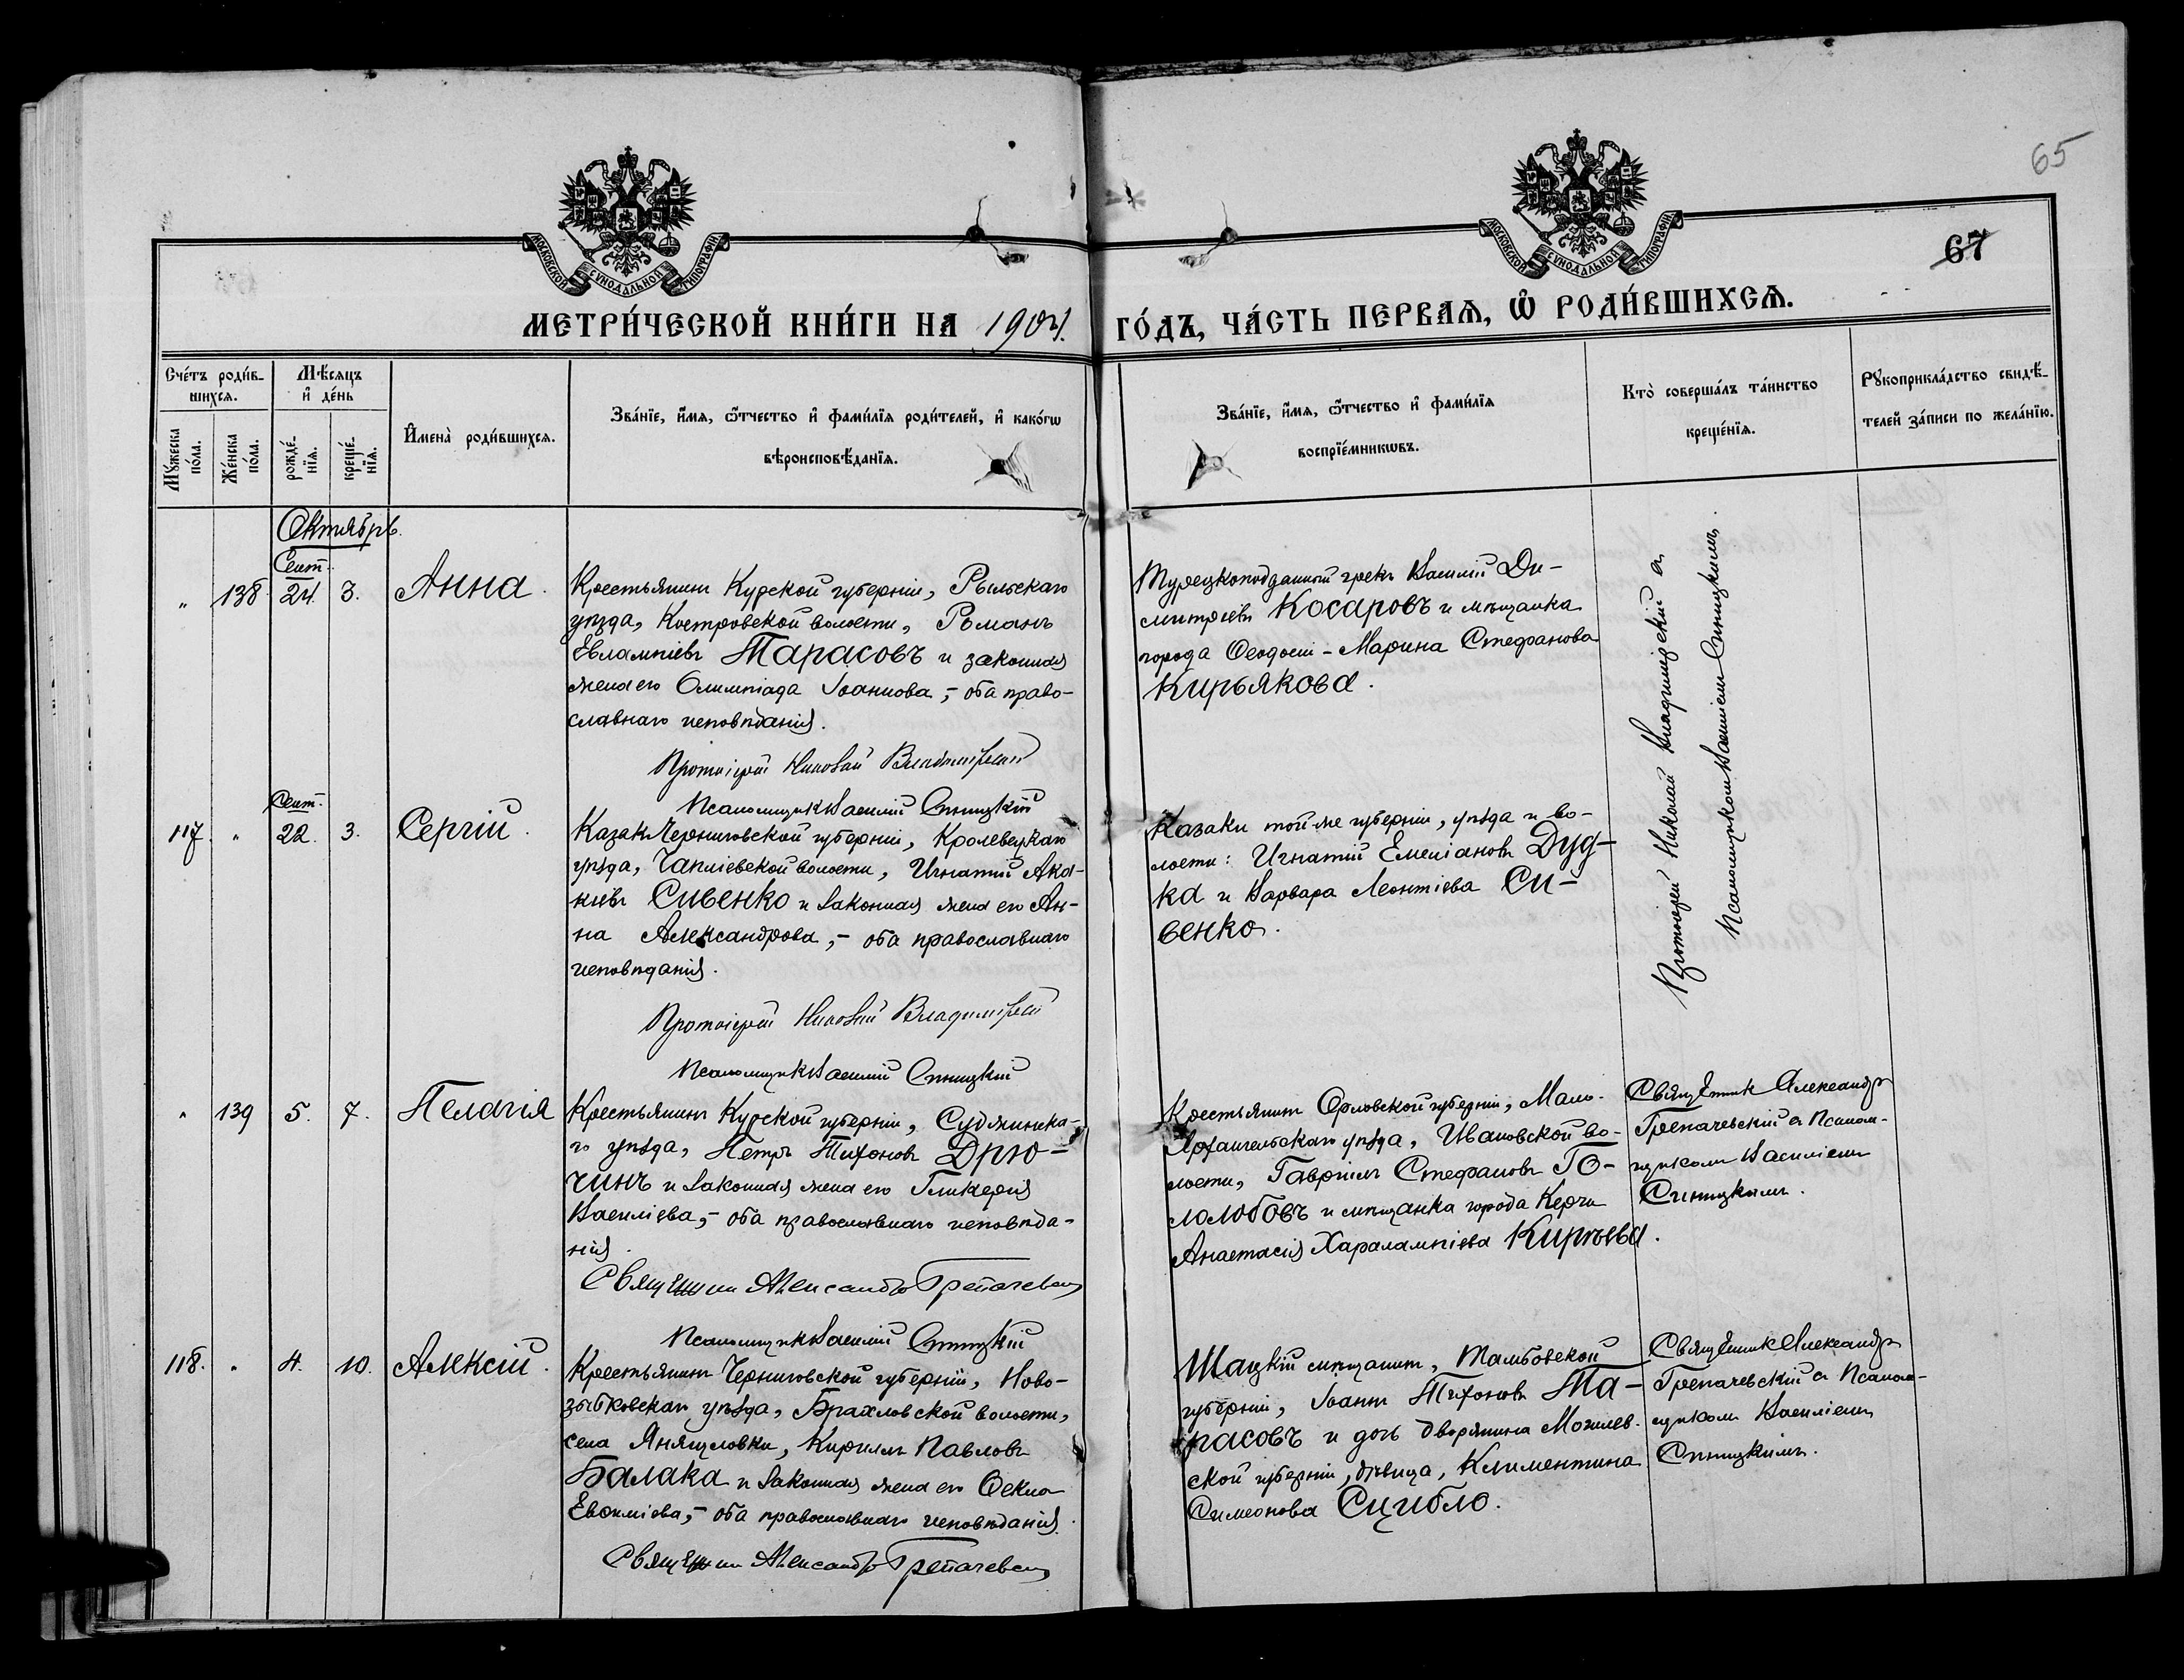 65
67
МОСКОВСКОЙ СУНОДАЛЬНОЙ ТИПОГРАФІИ.
МОСКОВСКОЙ СУНОДАЛЬНОЙ ТИПОГРАФІИ.
МЕТРИ́ЧЕСКОЙ КНИ́ГИ НА 1904. ГО́ДЪ, ЧА́СТЬ ПЕРВАѦ, Ѿ РОДИ́ВШИХСѦ.
Сче́тъ роди́в-
шихсѧ.
Мꙋжеска
по́ла.
Же́нска
по́ла.
Мѣ́сѧцъ
и҆ де́нь
рожде́-
нїѧ.
креще́-
нїѧ.
И҆мена̀ роди́вшихсѧ.
Зва́нїе, и҆́мѧ, ѻ҆́тчество и҆ фами́лїѧ роди́телей, и҆ како́гѡ
вѣроисповѣ́данїѧ.
Зва́нїе, и҆́мѧ, ѻ҆́тчество и҆ фами́лїѧ
воспрїе́мникѡвъ.
Кто̀ соверша́лъ та́инство
креще́нїѧ.
Рꙋкоприкла́дство свидѣ́-
телей за́писи по жела́нїю.
Октябрь.
Сент.
" 138. 24. 3. Анна.
Крестьянинъ Курской губерніи, Рыльскаго
уѣзда, Костровской волости, Романъ
Евлампіевъ Тарасовъ и законная
жена его Олимпіада Іоаннова, – оба право-
славнаго исповѣданія.
Протоіерей Николай Владимірскій
Псаломщикъ Василій Синицкій
Турецкоподданный грекъ Василій Ди-
митріевъ Косаровъ и мѣщанка
города Ѳеодосіи – Марина Стефанова
Кирьякова.
Протоіерей Николай Владимірскій съ
Псаломщикомъ Василіемъ Синицкимъ.
Сент.
117. " 22. 3. Сергій.
Казакъ Черниговской губерніи, Кролевецкаго
уѣзда, Чапліевской волости, Игнатій Ака-
кіевъ Сивенко и законная жена его Ан-
на Александрова, – оба православнаго
исповѣданія.
Протоіерей Николай Владимірскій
Псаломщикъ Василій Синицкій
Казаки той-же губерніи, уѣзда и во-
лости: Игнатій Емеліановъ Дуд-
ка и Варвара Леонтіева Си-
венко.
" 139 5. 7. Пелагія
Крестьянинъ Курской губерніи, Суджинска-
го уѣзда, Петръ Тихоновъ Дрю-
чинъ и законная жена его Гликерія
Василіева, – оба православнаго исповѣда-
нія.
Священникъ Александръ Грепачевскій
Псаломщикъ Василій Синицкій
Крестьянинъ Орловской губерніи, Мало-
Архангельскаго уѣзда, Ивановской во-
лости, Гавріилъ Стефановъ Го-
лолобовъ и мѣщанка города Керчи
Анастасія Харалампіева Киръева.
Священникъ Александръ
Грепачевскій съ Псалом-
щикомъ Василіемъ
Синицкимъ.
118. " 4. 10. Алексій.
Крестьянинъ Черниговской губерніи, Ново-
зыбковскаго уѣзда, Брахловской волости,
села Янящловки, Кириллъ Павловъ
Балака и законная жена его Ѳекла
Евѳиміева, – оба православнаго исповѣданія.
Священникъ Александръ Грепачевскій
Шацкій мѣщанинъ, Тамбовской
губерніи, Іоаннъ Тихоновъ Та-
расовъ и дочь дворянина Могилев-
ской губерніи, дѣвица, Климентина
Симеонова Сцибло.
Священникъ Александръ
Грепачевскій съ Псалом-
щикомъ Василіемъ
Синицкимъ.